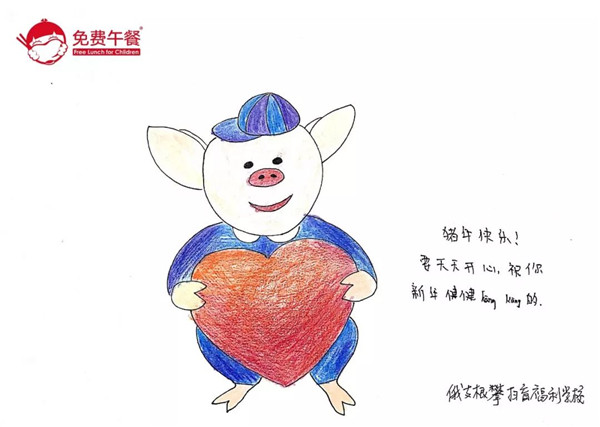 免费午餐
Free Lunch for Children
猪年快乐!
要天天开心,祝你
新年健健kāng kāng的.
福利学校